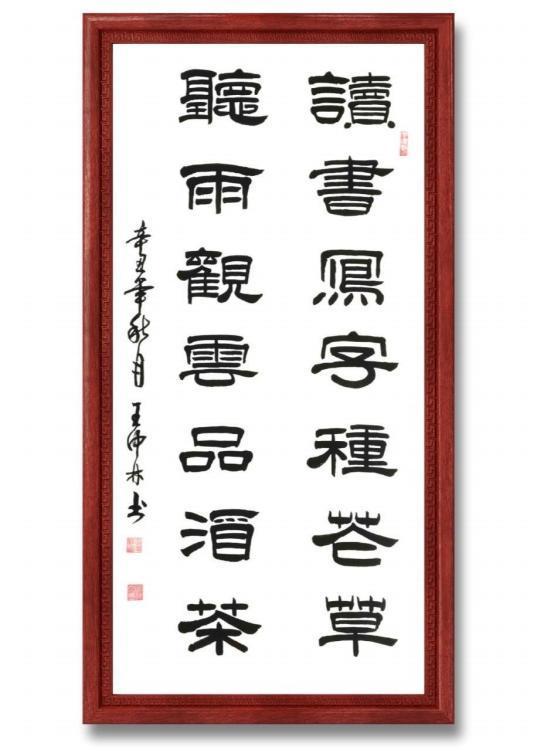 讀書寫字種花草
聽雨觀雲品酒茶
辛丑年秋月 王沛林书